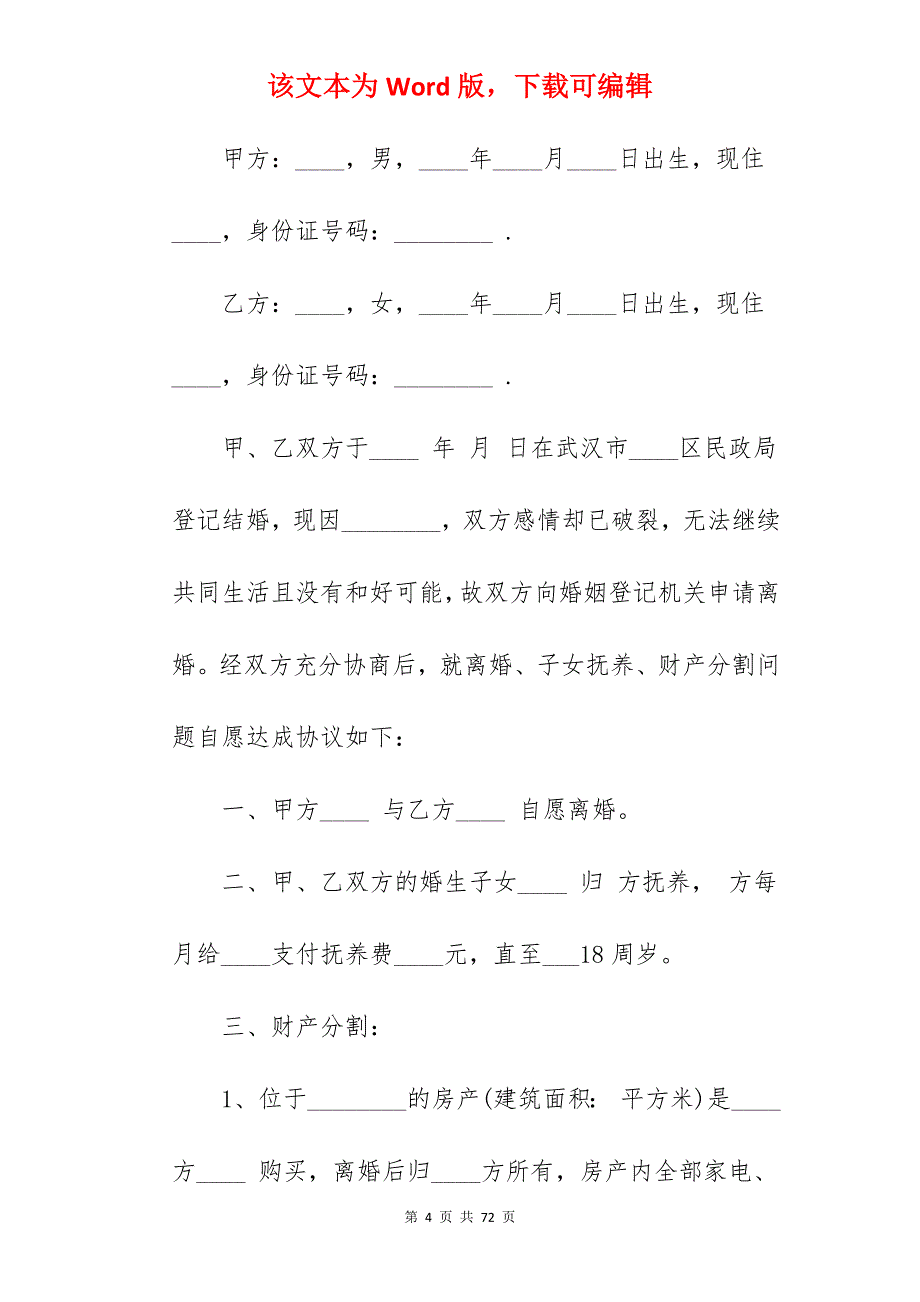 该文本为 Word 版，下载可编辑
甲方：____，男，____年____月____日出生，现住
____，身份证号码：________ .
乙方：____，女，____年____月____日出生，现住
____，身份证号码：________ .
甲、乙双方于____ 年 月 日在武汉市____区民政局
登记结婚，现因________，双方感情却已破裂，无法继续
共同生活且没有和好可能，故双方向婚姻登记机关申请离
婚。经双方充分协商后，就离婚、子女抚养、财产分割问
题自愿达成协议如下：
一、甲方____ 与乙方____ 自愿离婚。
二、甲、乙双方的婚生子女____ 归 方抚养， 方每
月给____支付抚养费____元，直至___18 周岁。
三、财产分割：
1、位于________的房产(建筑面积： 平方米)是____
方____ 购买，离婚后归____方所有，房产内全部家电、
第 4 页 共 72 页